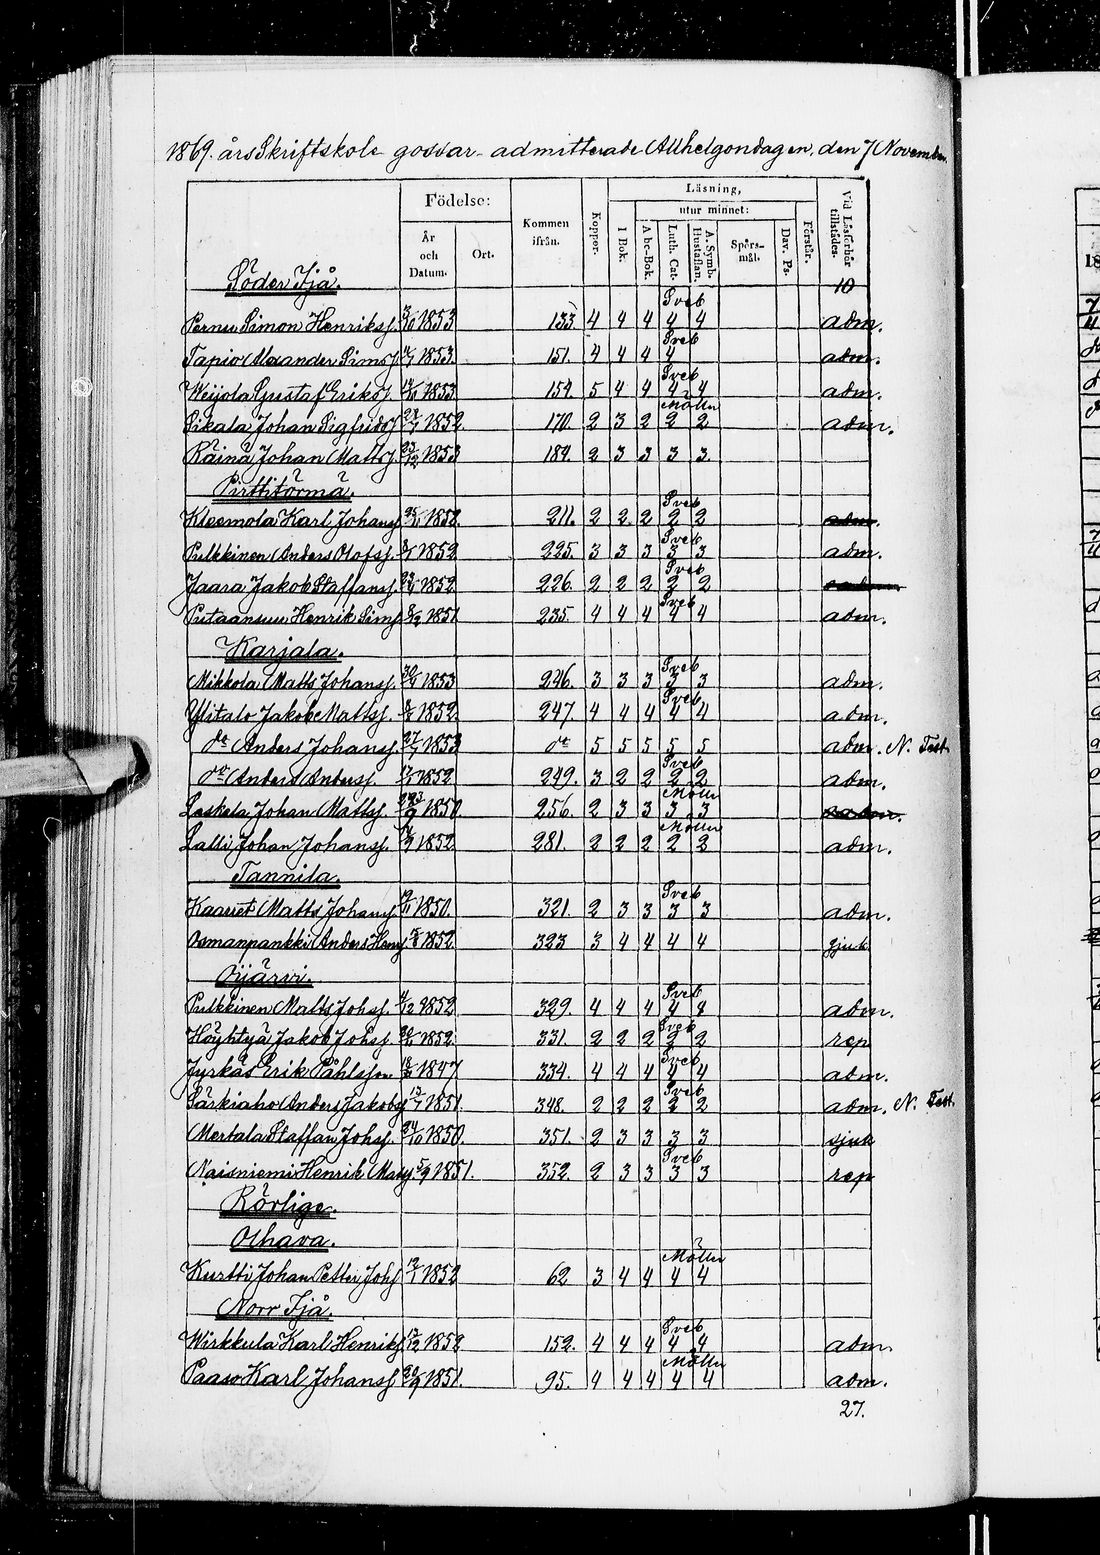 1869. års Skriftskole gossar admitterade Allhelgondagen, den 7 November
Födelse: Kommen ifrån. Koppor. Läsning, Vid Läsförhör tillstädes.
utur minnet:
År och Datum. Ort. I Bok. Abc-Bok. Luth. Cat. A. Symb. Hustaflan. Spörs-mål. Dav. Ps. Förstår.
Söder Ijå. 10
Sveb
Pernu Simon Henriksf. 1853 133 4 4 4 4 4 adm.
Sveb
Tapio Alexander Simsf 1853. 151. 4 4 4 4 adm.
Sveb
Weijola Gustaf Eriksf. 1853 154. 5 4 4 4 4 adm.
Möller
Sikala Johan Sigfridsf 1852. 170. 2 3 2 2 2 adm.
Räinä Johan Mattsf. 23/12 1853 184. 2 3 3 3 3.
Pirttitörmä.
Sveb
Kleemola Karl Johansf 1852. 211. 2 2 2 2 2 adm.
Sveb
Pulkkinen Anders Olofsf. 1852 225. 3 3 3 3 3 adm.
Sveb
Jaara Jakob Staffansf. 1852. 226. 2 2 2 2 2
Sveb
Putaansuu Henrik Simsf 1851 235. 4 4 4 4 4 adm.
Karjala.
Sveb
Mikkola Matts Johansf. 1853 246. 3 3 3 3 3 adm.
Sveb
Ylitalo Jakob Mattsf. 1852. 247. 4 4 4 4 4 adm.
do Anders Johansf. 1853 do 5 5 5 5 5 adm. N. Test.
Sveb
do Anders Andersf. 1852. 249. 3 2 2 2 2 adm.
Möller
Laskela Johan Mattsf. 1850. 256. 2 3 3 3 3
Möller
Lalli Johan Johansf. 1852. 281. 2 2 2 2 2 adm.
Tannila.
Sveb
Kaarret Matts Johansf 1850. 321. 2 3 3 3 3 adm.
Osmanpankki Anders Hensf 1852. 323 3 4 4 4 4 sjuk
Oijärvi.
Sveb
Pulkkinen Matts Johsf. 4/12 1852 329. 4 4 4 4 4 adm.
Sveb
Höyhtyä Jakob Johsf. 1852. 331. 2 2 2 2 2 rep
Sveb
Jyrkäs Erik Påhlsson 1847 334. 4 4 4 4 4 adm.
Sveb
Särkiaho Anders Jakobsf 1851. 348. 2 2 2 2 2 adm. N. Test.
Mertala Staffan Johsf. 24/10 1850. 351. 2 3 3 3 3 sjuk
Sveb
Naisniemi Henrik Matsf. 5/9 1851. 352. 2 3 3 3 3 rep
Rörlige.
Olhava.
Möller
Kurtti Johan Petter Johsf 12/1 1852 62 3 4 4 4 4
Norr Ijå.
Sveb
Wirkkula Karl Henriksf 1852 152. 4 4 4 4 4 adm.
Möller
Paaso Karl Johansf 20/9 1851. 95. 4 4 4 4 4 adm.
27.